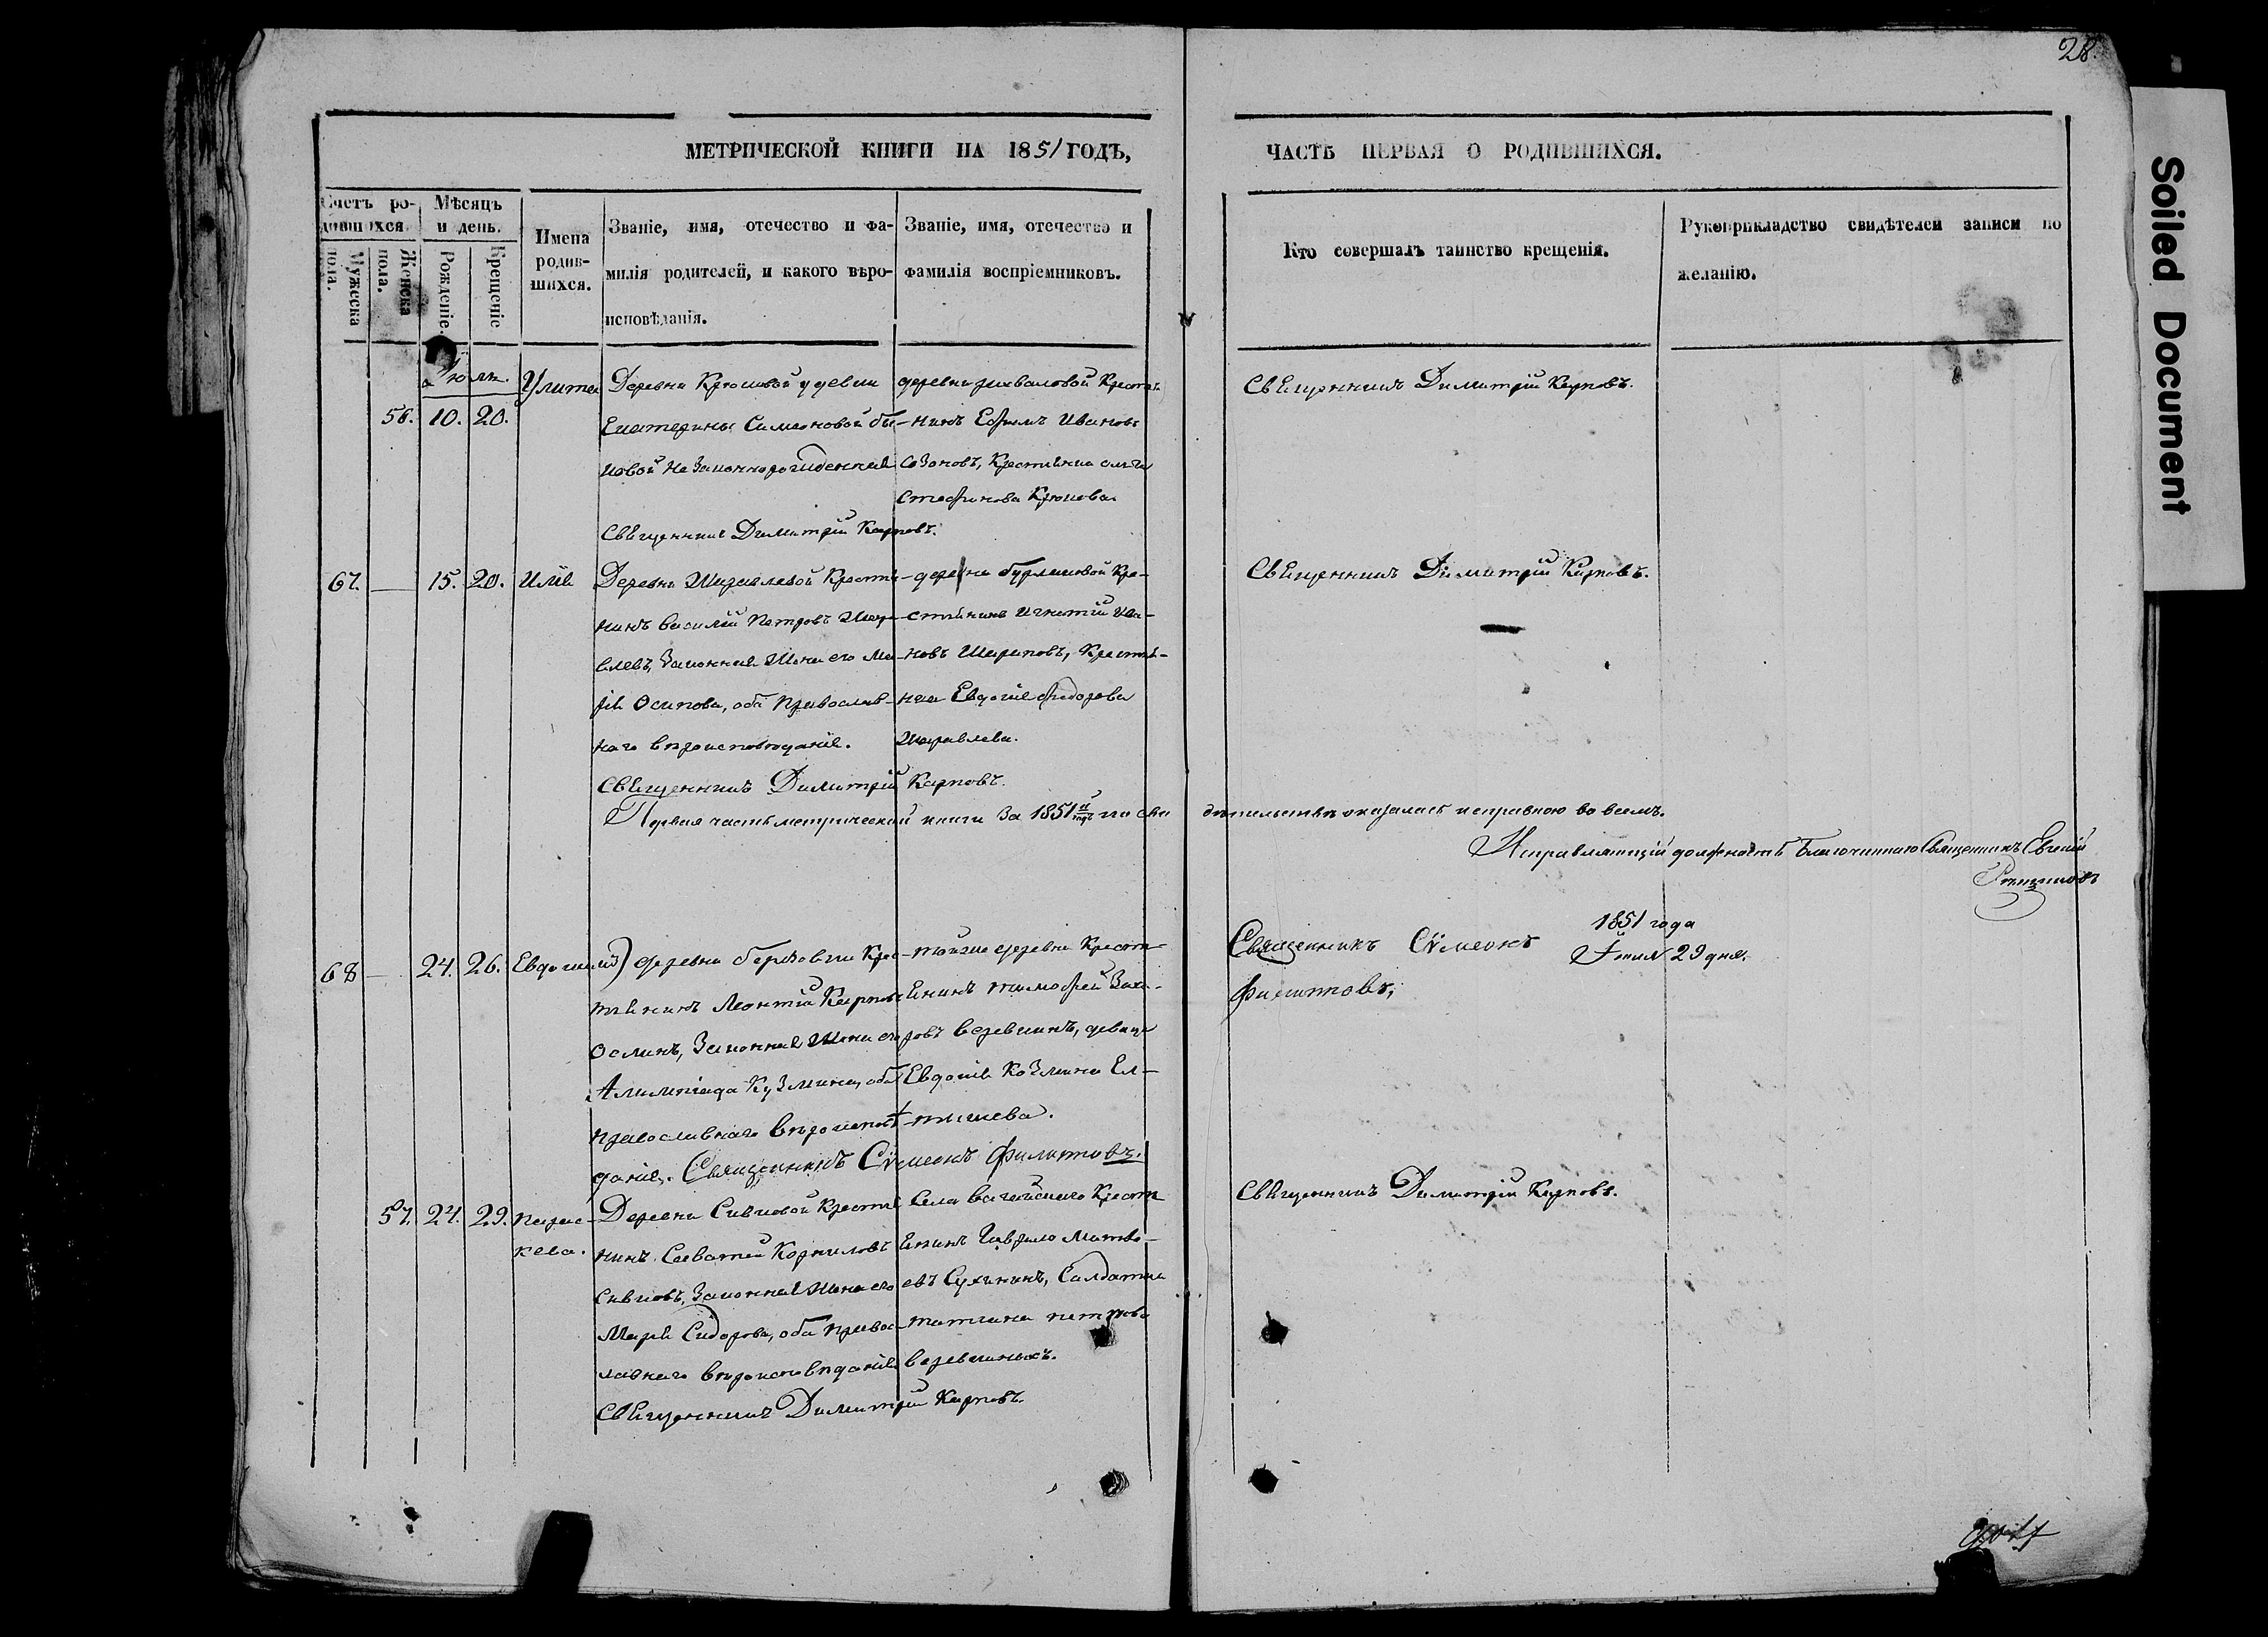 28.
МЕТРИЧЕСКОЙ КНИГИ НА 1851 ГОДЪ,
ЧАСТЬ ПЕРВАЯ О РОДИВШИХСЯ.
Счетъ ро-
дившихся.
Мужеска пола.
Женска пола.
Мѣсяцъ
и день.
Рожденіе.
Крещеніе
Имена
родив-
шихся.
Званіе, имя, отечество и фа-
милія родителей, и какого вѣро-
исповѣданія.
Званіе, имя, отечество и
фамилія воспріемниковъ.
Кто совершалъ таинство крещенія.
Рукоприкладство свидѣтелей записи по
желанію.
56. 10. 20. Улита
Деревни Крюковой
Екатерины Симеоновой
незаконнорожденная
Священникъ Димитрій Карповъ.
деревни Крестья
нинъ Ефимъ Ивановъ
Созоновъ, Крестьянка
Крюкова
Священникъ Димитрій Карповъ.
67. — 15. 20. Илія
Деревни Журавлевой Крестья-
нинъ Василій Петровъ Жура-
влевъ, Законная жена его Ма-
рія Осипова, оба православ-
наго вѣроисповѣданія.
Священникъ Димитрій Карповъ.
деревни Бурлаковой Кре-
стьянинъ Игнатій Ива-
новъ Шариповъ, Крестья-
нка Евдокія Федорова
Журавлева.
Священникъ Димитрій Карповъ.
Первая часть метрической книги за 1851й годъ по сви дѣтельствѣ оказалась исправною во всемъ.
Исправляющій должность Благочиннаго Священникъ Евгеній
1851 года
Іюля 29 дня.
68 — 24. 26. Евдокимъ
деревни Крес-
тьянинъ Леонтій Карповъ
Законная жена его
Кузмина, оба
православнаго вѣроиспов
данія. Священникъ Сѵмеонъ Филиповъ.
той же деревни Кресть
янинъ Тимофей Заха-
ровъ девица
Евдокія Козмина Ел-
тышева.
Священникъ Сѵмеонъ
Филипповъ,
57. 24. 29. Парас-
кева.
Деревни Сивковой Крестья
нинъ Савватей Корниловъ
Сивковъ, Законная жена его
Марія Сидорова, оба правос-
лавнаго вѣроисповѣданія
Священникъ Димитрій Карповъ.
Села Вагайскаго Кресть
янинъ Гаврило Матве-
евъ Сухининъ, Салдатка
Татиана Петрова
Священникъ Димитрій Карповъ.
Soiled Document